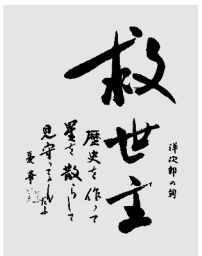 洋次郎の詞
救世主
歴史を作って
星を散らして
見守って